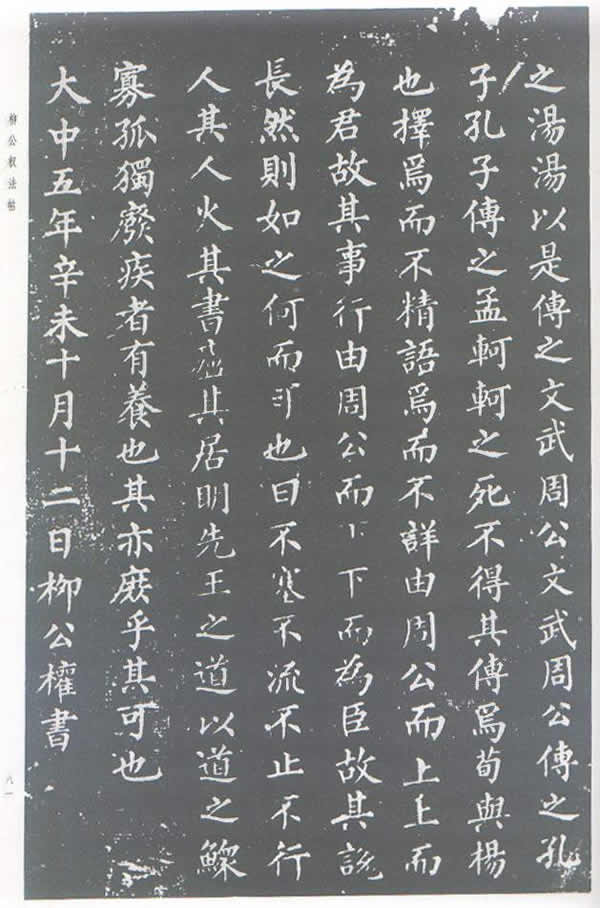 之湯湯以是傳之文武周公文武周公傳之孔
子孔子傳之孟軻軻之死不得其傳焉荀與楊
也擇焉而不精語焉而不詳由周公而上上而
為君故其事行由周公而下下而為臣故其說
長然則如之何而可也曰不塞不流不止不行
人其人火其書廬其居明先王之道以道之鰥
寡孤獨癈疾者有養也其亦庶乎其可也
大中五年辛未十月十二日柳公權書
柳公权法帖
八一